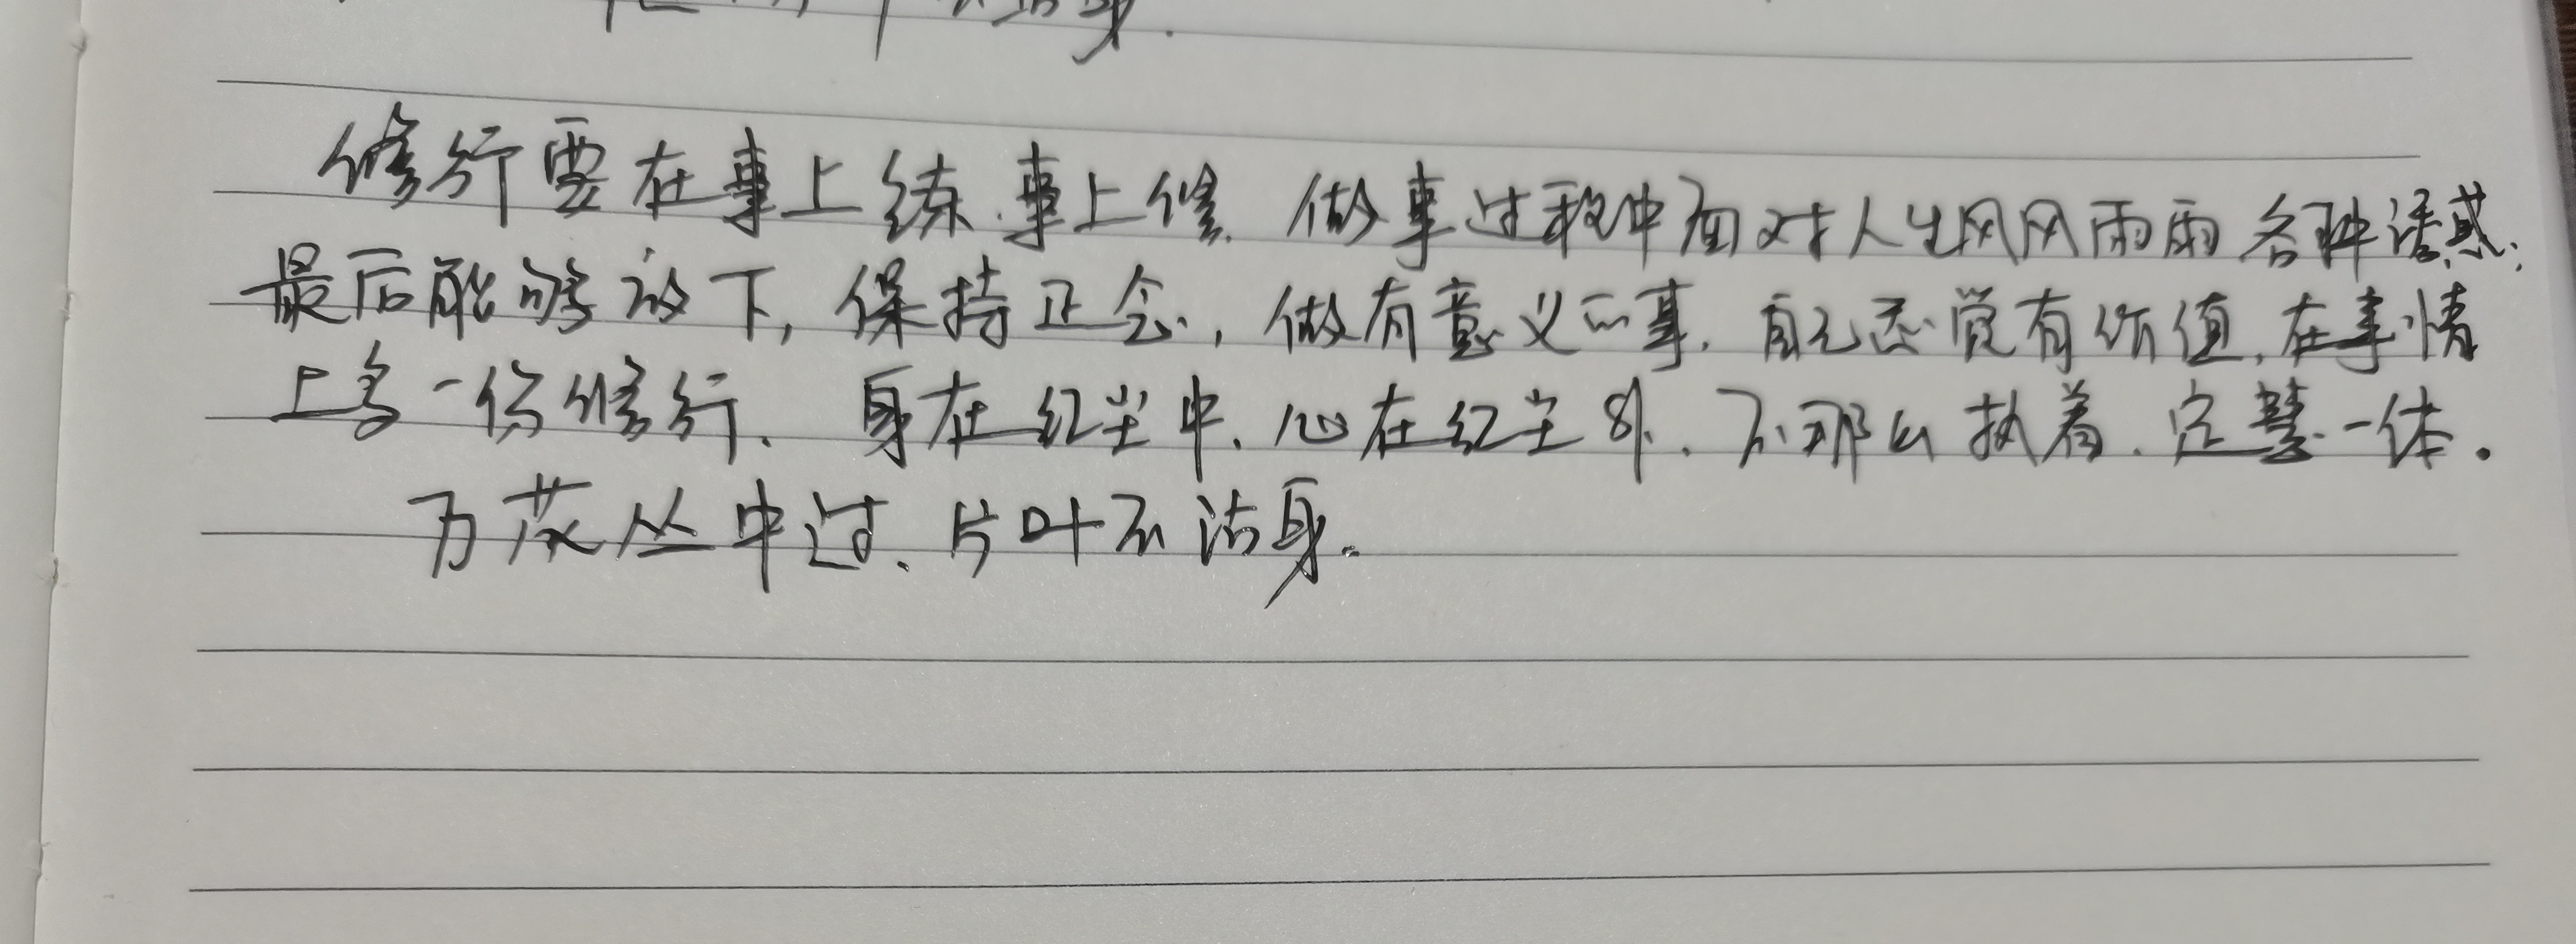 修行要在事上练、事上修、做事过程中面对人生风风雨雨各种诱惑,
最后能够放下,保持正念,做有意义的事,自己感觉有价值,在事情
上多一份修行、身在红尘中、心在红尘外、不那么执着、定慧一体。
万花丛中过、片叶不沾身。